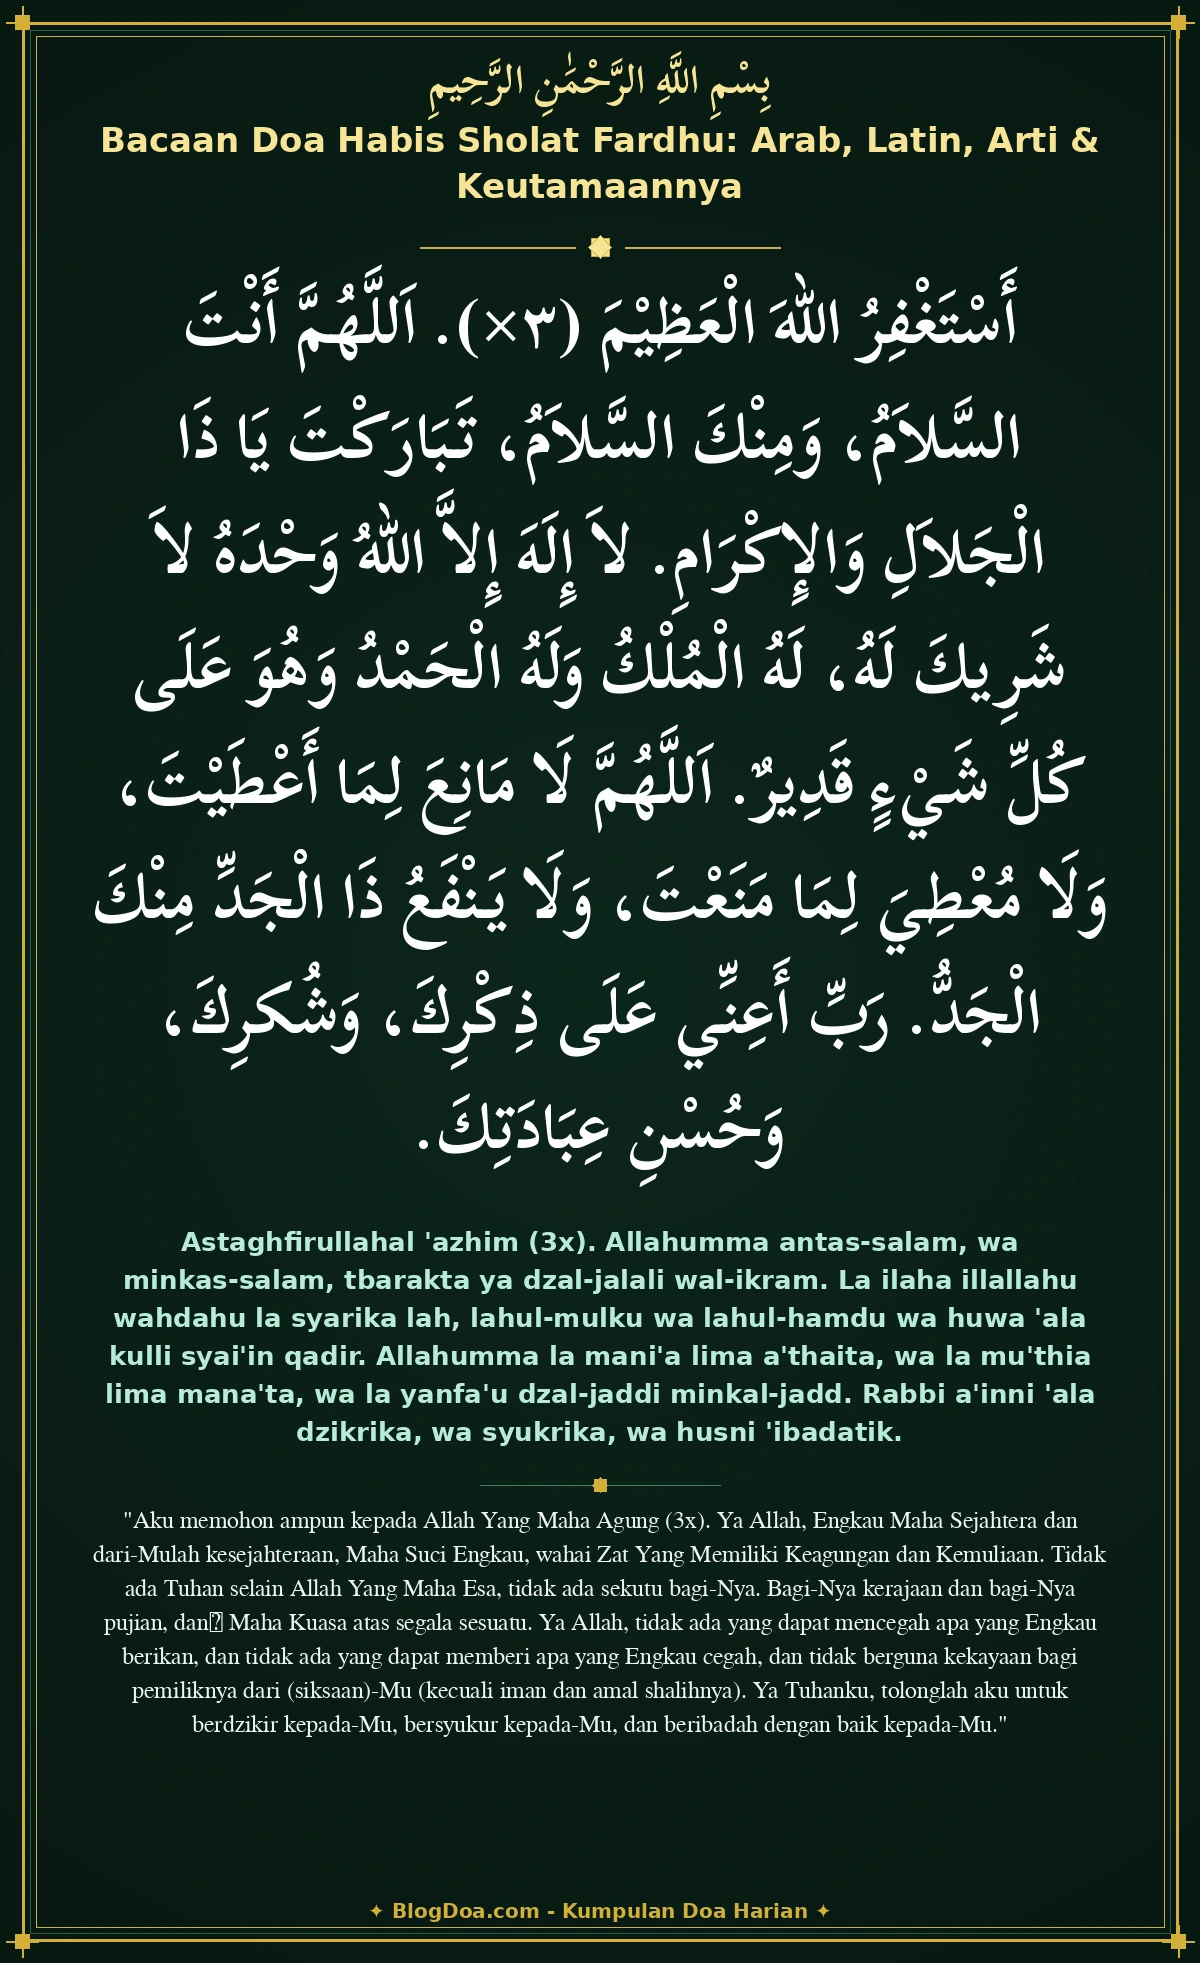 بِسْمِ اللَّهِ الرَّحْمَٰنِ الرَّحِيمِ
Bacaan Doa Habis Sholat Fardhu: Arab, Latin, Arti &
Keutamaannya
أَسْتَغْفِرُ اللهَ الْعَظِيْمَ (٣×). اَللَّهُمَّ أَنْتَ
السَّلاَمُ، وَمِنْكَ السَّلاَمُ، تَبَارَكْتَ يَا ذَا
الْجَلاَلِ وَالإِكْرَامِ. لاَ إِلَهَ إِلاَّ اللهُ وَحْدَهُ لاَ
شَرِيكَ لَهُ، لَهُ الْمُلْكُ وَلَهُ الْحَمْدُ وَهُوَ عَلَى
كُلِّ شَيْءٍ قَدِيرٌ. اَللَّهُمَّ لَا مَانِعَ لِمَا أَعْطَيْتَ،
وَلَا مُعْطِيَ لِمَا مَنَعْتَ، وَلَا يَنْفَعُ ذَا الْجَدِّ مِنْكَ
الْجَدُّ. رَبِّ أَعِنِّي عَلَى ذِكْرِكَ، وَشُكرِكَ،
وَحُسْنِ عِبَادَتِكَ.
Astaghfirullahal 'azhim (3x). Allahumma antas-salam, wa
minkas-salam, tbarakta ya dzal-jalali wal-ikram. La ilaha illallahu
wahdahu la syarika lah, lahul-mulku wa lahul-hamdu wa huwa 'ala
kulli syai'in qadir. Allahumma la mani'a lima a'thaita, wa la mu'thia
lima mana'ta, wa la yanfa'u dzal-jaddi minkal-jadd. Rabbi a'inni 'ala
dzikrika, wa syukrika, wa husni 'ibadatik.
"Aku memohon ampun kepada Allah Yang Maha Agung (3x). Ya Allah, Engkau Maha Sejahtera dan
dari-Mulah kesejahteraan, Maha Suci Engkau, wahai Zat Yang Memiliki Keagungan dan Kemuliaan. Tidak
ada Tuhan selain Allah Yang Maha Esa, tidak ada sekutu bagi-Nya. Bagi-Nya kerajaan dan bagi-Nya
pujian, dan Maha Kuasa atas segala sesuatu. Ya Allah, tidak ada yang dapat mencegah apa yang Engkau
berikan, dan tidak ada yang dapat memberi apa yang Engkau cegah, dan tidak berguna kekayaan bagi
pemiliknya dari (siksaan)-Mu (kecuali iman dan amal shalihnya). Ya Tuhanku, tolonglah aku untuk
berdzikir kepada-Mu, bersyukur kepada-Mu, dan beribadah dengan baik kepada-Mu."
✦ BlogDoa.com - Kumpulan Doa Harian ✦